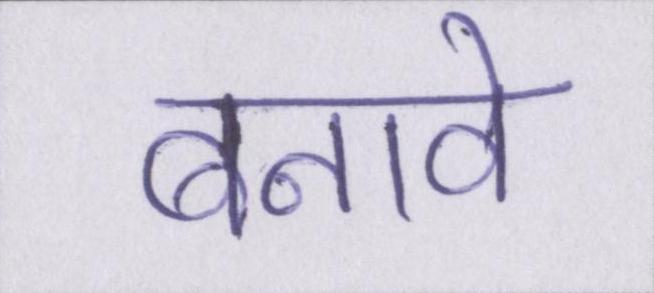 बनावे